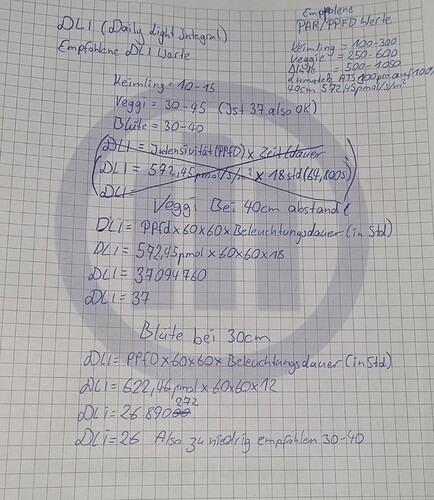 DLI (Daily Light Integral)
Empfohlene DLI Werte
Empfolene
PAR/PPFD Werte
Keimling = 100-300
Veggie = 250-600
Blüte = 500-1050
ATS 100 auf 100%
40cm 572,45pmol/s/m²
Keimling = 10-15
Veggi = 30-45 (Ist 37, also OK)
Blüte = 30-40
DLI = Intensivität (PPFD) x Zeit/dauer
DLI = 572,45pmol/s/m² x 18std (64,800s)
DLI=
Veggi Bei 40cm abstand
DLI= PPFd x 60 x 60 x Beleuchtungsdauer (in Std)
DLI= 572,45pmol x 60 x 60 x 18
DLI= 37094760
DLI= 37
Blüte bei 30cm
DLI= PPFD x 60 x 60 x Beleuchtungsdauer (in Std)
DLI= 622,46pmol x 60 x 60 x 12
DLI= 26.890272
DLI= 26 Also zu niedrig empfohlen 30-40